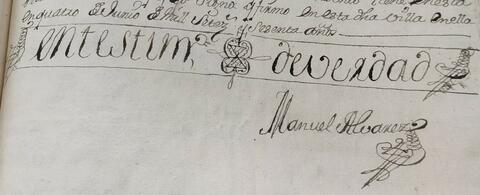 signo y firmo en esta dha villa en ella
en quatro de Junio de Mill Setez.s y Sesenta años
en testim.o de verdad
Manuel Alvarez